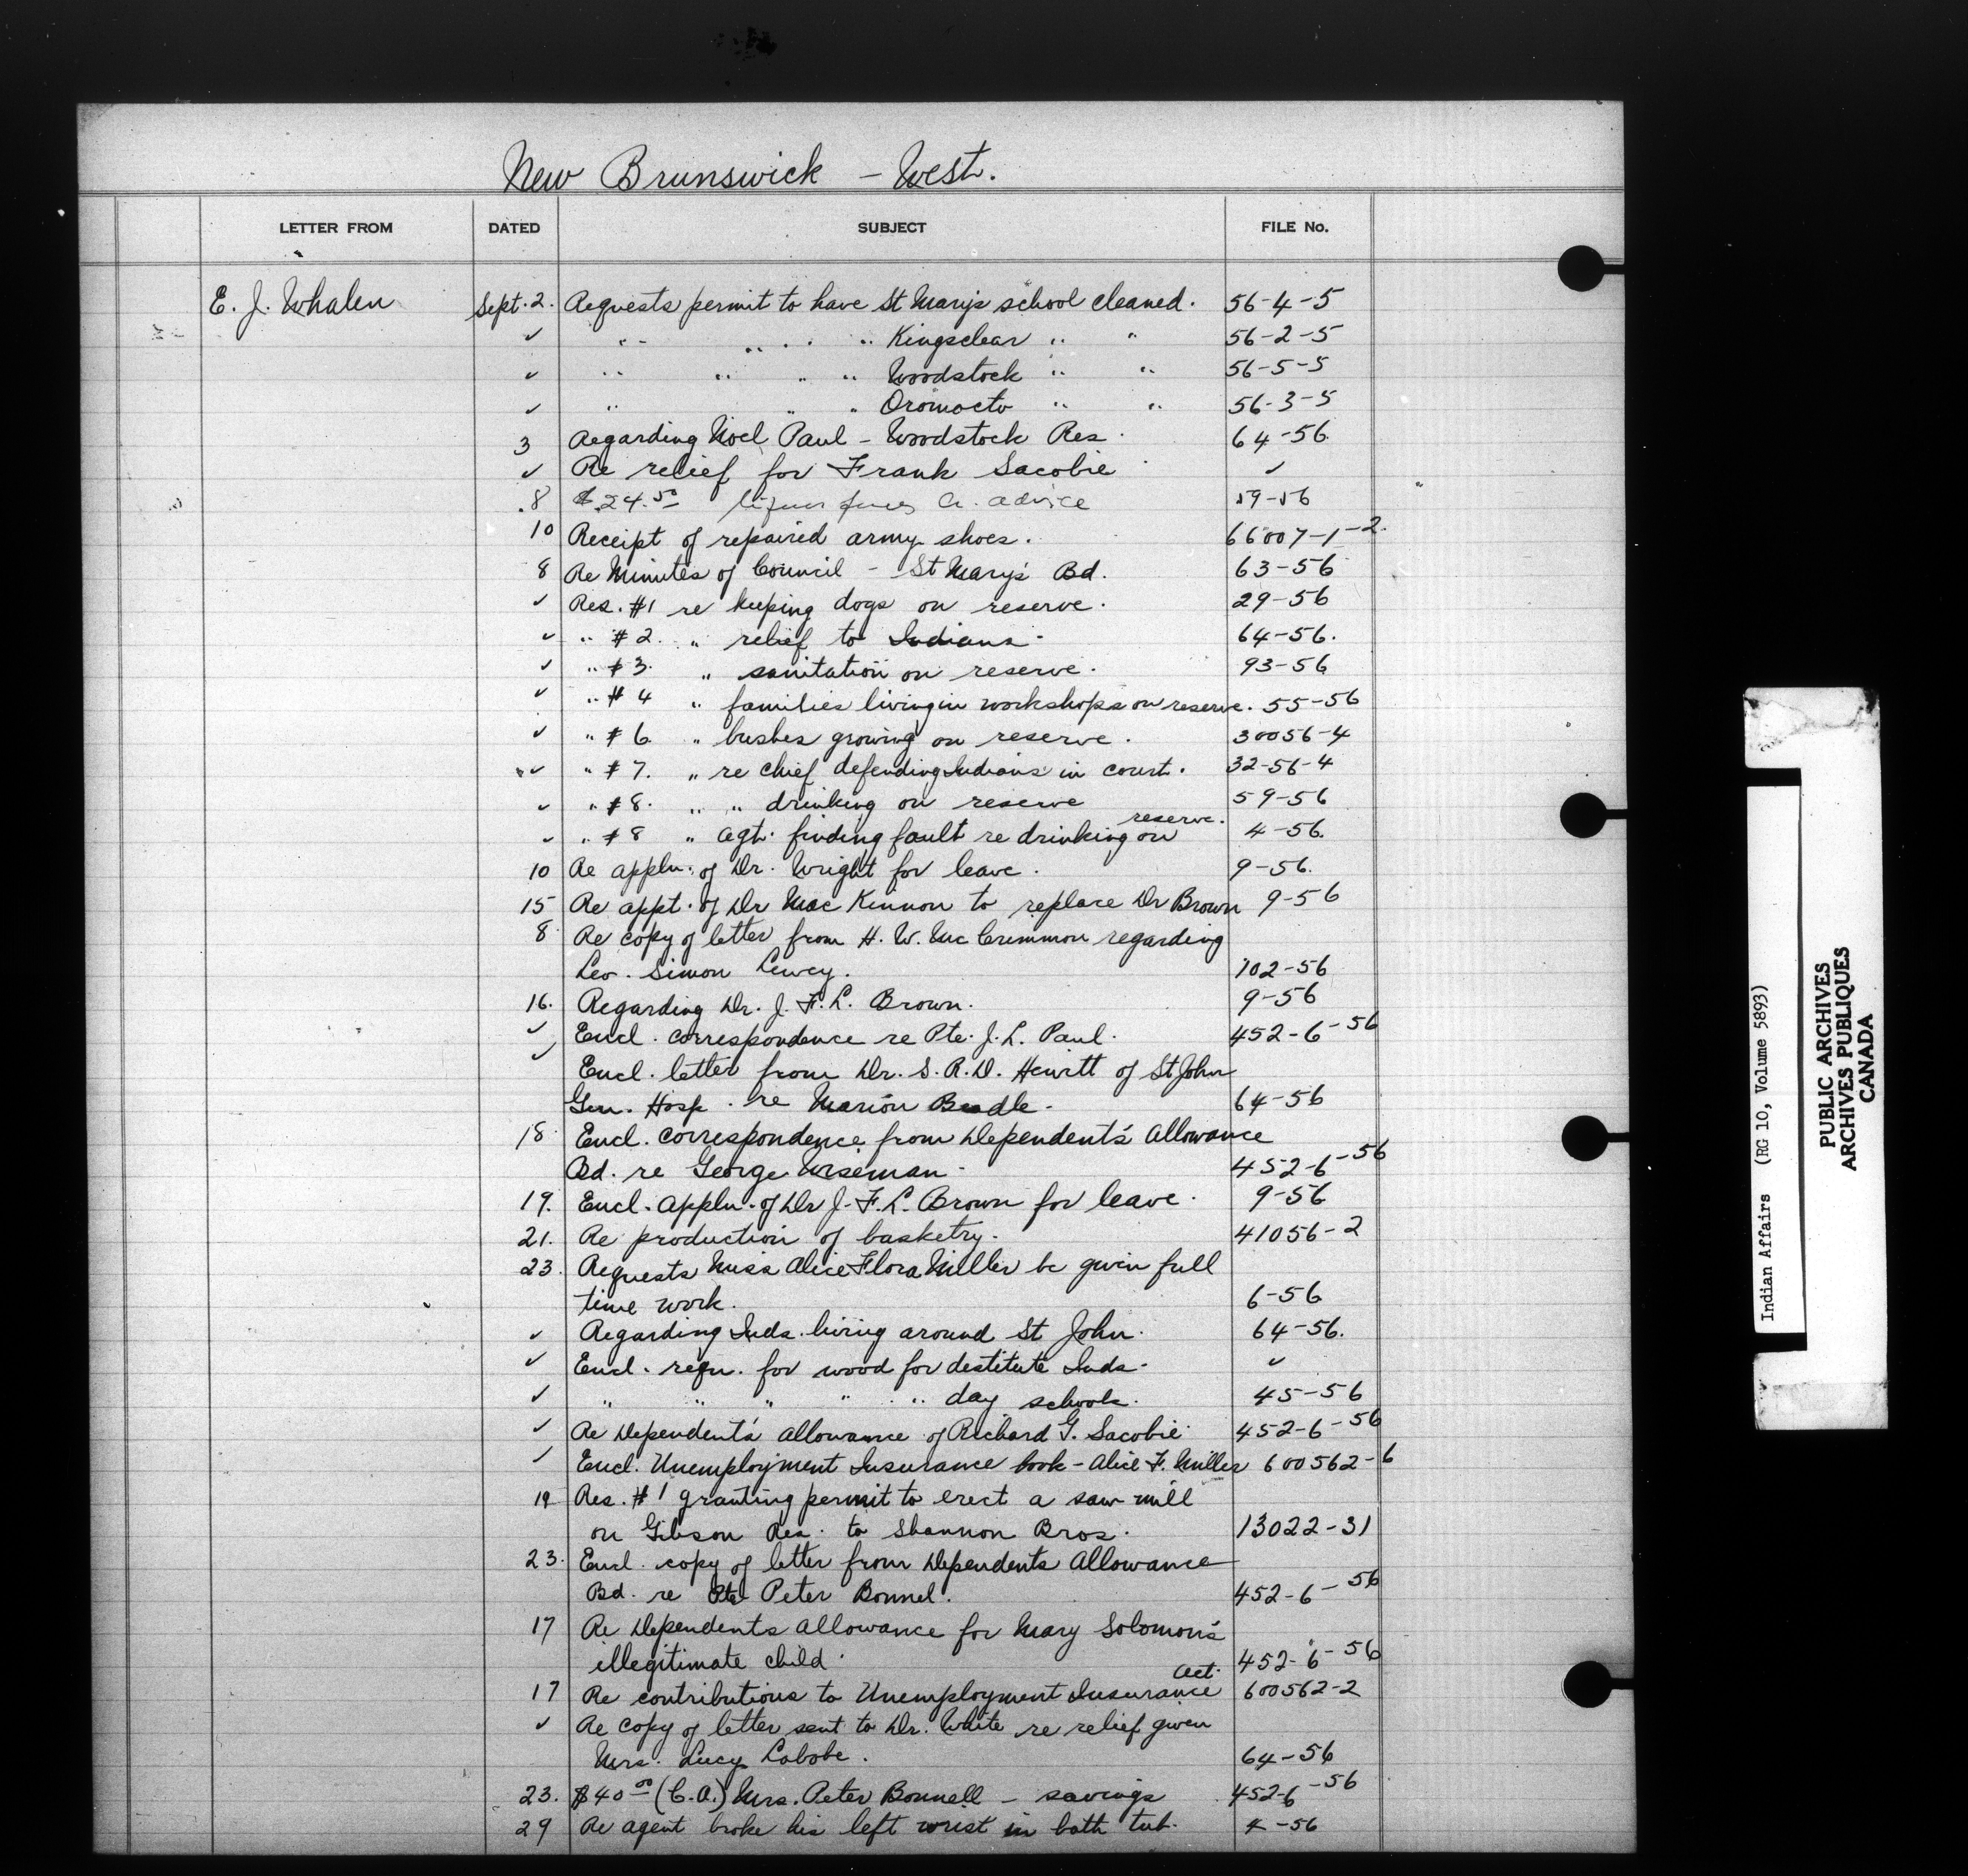 New Brunswick - West.
LETTER FROM DATED SUBJECT FILE No.
E. J. Whalen Sept. 2. Requests permit to have St Mary's school cleaned. 56-4-5
✓ " " " " Kingsclear " " 56-2-5
✓ " " " " Woodstock " " 56-5-5
✓ " " " Oromocto " " 56-3-5
3 Regarding Noel Paul - Woodstock Res. 64-56
✓ Re relief for Frank Sacobie ✓
8 $24.50 liquor fines Cr. advice 59-56
10 Receipt of repaired army shoes. 66007-1-2.
8 Re Minutes of Council - St Mary's Bd. 63-56
✓ Res. #1 re keeping dogs on reserve. 29-56
✓ " #2. " relief to Indians. 64-56.
✓ " #3. " sanitation on reserve. 93-56
✓ " #4 " families living in workshops on reserve. 55-56
✓ " #6. " bushes growing on reserve. 30056-4
✓ " #7. " re chief defending Indians in court. 32-56-4
✓ " #8. " " drinking on reserve 59-56
✓ " #8 " Agt. finding fault re drinking on reserve. 4-56.
10 Re appln. of Dr. Wright for leave. 9-56.
15 Re appt. of Dr Mac Kinnon to replace Dr Brown 9-56
8 Re copy of letter from H. W. Mc Crimmon regarding
Leo. Simon Lewey. 102-56
16. Regarding Dr. J. F. L. Brown. 9-56
✓ Encl. correspondence re Pte. J. L. Paul. 452-6-56
✓ Encl. letter from Dr. S. R. D. Hewitt of St John
Gen. Hosp. re Marion Beadle. 64-56
18 Encl. correspondence from Dependent's Allowance
Bd. re George Wiseman 452-6-56
19. Encl. appln. of Dr J. F. L. Brown for leave. 9-56
21. Re production of basketry. 41056-2
23. Requests Miss Alice Flora Miller be given full
time work. 6-56
✓ Regarding Inds. living around St John. 64-56.
✓ Encl. reqn. for wood for destitute Inds. ✓
✓ " " " " " day schools. 45-56
✓ Re Dependent's allowance of Richard G. Sacobie 452-6-56
✓ Encl. Unemployment Insurance book - Alice F. Miller 600562-6
19 Res. #1 granting permit to erect a saw mill
on Gibson Res. to Shannon Bros. 13022-31
23. Encl. copy of letter from Dependents Allowance
Bd. re Pte Peter Bonnel. 452-6-56
17 Re Dependents allowance for Mary Solomon's
illegitimate child. 452-6-56
17 Re contributions to Unemployment Insurance Act. 600562-2
✓ Re copy of letter sent to Dr. White re relief given
Mrs. Lucy Labobe. 64-56
23. $40.00 (C.A.) Mrs. Peter Bonnell - savings 452-6-56
29 Re agent broke his left wrist in bath tub. 4-56
Indian Affairs (RG 10, Volume 5893)
PUBLIC ARCHIVES
ARCHIVES PUBLIQUES
CANADA